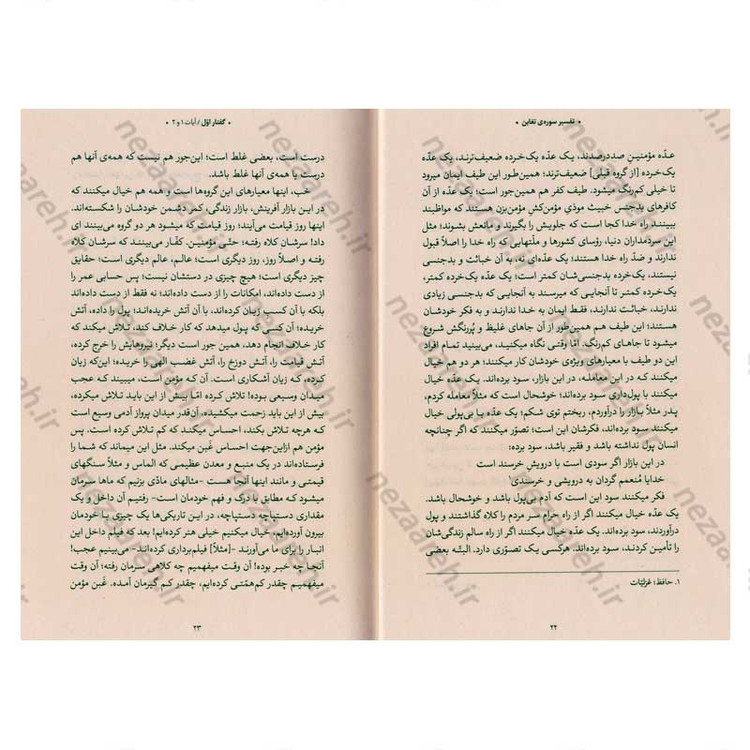 • تفسیر سوره‌ی تغابن •
عدّه مؤمنینِ صددرصدند، یک عدّه یک‌خرده ضعیف‌ترند، یک عدّه
یک‌خرده [از گروه قبلی] ضعیف‌ترند؛ همین‌طور این طیف ایمان میرود
تا خیلی کم‌رنگ میشود. طیف کفر هم همین‌جور است؛ یک عدّه از آن
کافرهای بدجنس خبیث موذیِ مؤمن‌کُشِ مؤمن‌بزن هستند که مواظبند
ببینند راه خدا کجا است که جلویش را بگیرند و مانعش بشوند؛ مثل
این سردمداران دنیا، رؤسای کشورها و ملّتهایی که راه خدا را اصلاً قبول
ندارند و ضدّ راه خدا هستند؛ یک عدّه‌ای نه، به آن خباثت و بدجنسی
نیستند، یک‌خرده بدجنسی‌شان کمتر است؛ یک عدّه یک‌خرده کمتر،
یک‌خرده کمتر تا آنجایی که میرسند به آنجایی که بدجنسی زیادی
ندارند، خباثت ندارند، فقط ایمان به خدا ندارند و به فکر خودشان
هستند؛ این طیف هم همین‌طور از آن جاهای غلیظ و پُررنگش شروع
میشود تا جاهای کم‌رنگ. امّا وقتی نگاه میکنید، می‌بینید تمام افراد
این دو طیف با معیارهای ویژه‌ی خودشان کار میکنند؛ هر دو هم خیال
میکنند که در این معامله، در این بازار، سود برده‌اند. یک عدّه خیال
میکنند با پول‌داری سود برده‌اند؛ خوشحال است که مثلاً معامله کردم،
پدر مثلاً بازار را درآوردم، ریختم توی شکم؛ یک عدّه با بی‌پولی خیال
میکنند سود برده‌اند، فکرشان این است؛ تصوّر میکنند که اگر چنانچه
انسان پول نداشته باشد و فقیر باشد، سود برده:
در این بازار اگر سودی است با درویش خرسند است
خدایا مُنعمم گردان به درویشی و خرسندی۱
فکر میکنند سود این است که آدم بی‌پول باشد و خوشحال باشد.
یک عدّه خیال میکنند اگر از راه حرام سر مردم را کلاه گذاشتند و پول
درآوردند، سود برده‌اند. یک عدّه خیال میکنند اگر از راه سالم زندگی‌شان
را تأمین کردند، سود برده‌اند. هرکسی یک تصوّری دارد. البتّه بعضی
۱. حافظ؛ غزلیّات
۲۲
• گفتار اوّل / آیات ۱ و ۲ •
درست است، بعضی غلط است؛ این‌جور هم نیست که همه‌ی آنها هم
درست یا همه‌ی آنها غلط باشد.
خب، اینها معیارهای این گروه‌ها است و همه هم خیال میکنند که
در این بازار آفرینش، بازار زندگی، کمر دشمن خودشان را شکسته‌اند.
اینها روز قیامت می‌آیند؛ روز قیامت که میشود هر دو گروه می‌بینند ای
داد! سرشان کلاه رفته؛ حتّی مؤمنین. کفّار می‌بینند که سرشان کلاه
رفته و اصلاً روز، روز دیگری است؛ عالم، عالم دیگری است؛ حقایق
چیز دیگری است؛ هیچ چیزی در دستشان نیست؛ پس حسابی عمر را
از دست داده‌اند، امکانات را از دست داده‌اند؛ نه فقط از دست داده‌اند
بلکه با آن کسب زیان کرده‌اند، با آن آتش خریده‌اند؛ پول را داده، آتش
خریده؛ آن کسی که پول میدهد که کار خلاف کند، تلاش میکند که
کار خلاف انجام دهد، همین جور است دیگر؛ نیروهایش را خرج کرده،
آتش قیامت را، آتش دوزخ را، آتش غضب الهی را خریده؛ این‌که زیان
کرده، یک زیان آشکاری است. آن که مؤمن است، میبیند که عجب
میدان وسیعی بوده! تلاش کرده امّا بیش از این باید تلاش میکرده،
بیش از این باید زحمت میکشیده. آن‌قدر میدان پرواز آدمی وسیع است
که هرچه تلاش بکند، احساس میکند که کم تلاش کرده است. پس
مؤمن هم ازاین‌جهت احساس غَبن میکند. مثل این میماند که شما را
فرستاده‌اند در یک منبع و معدن عظیمی که الماس و مثلاً سنگهای
قیمتی و مانند اینها آنجا هست -مثالهای مادّی بزنیم که ماها سرمان
میشود که مطابق با درک و فهم خودمان است- رفتیم آن داخل و یک
مقداری دستپاچه دستپاچه، در این تاریکی‌ها یک چیزی با خودمان
بیرون آورده‌ایم، خیال میکنیم خیلی هنر کرده‌ایم؛ بعد که فیلم داخل این
انبار را برای ما می‌آورند -[مثلاً] فیلم‌برداری کرده‌اند- می‌بینیم عجب!
آنجا چه خبر بوده! آن وقت میفهمیم چه کلاهی سرمان رفته؛ آن وقت
میفهمیم چقدر کم‌همّتی کرده‌ایم، چقدر کم گیرمان آمده. غَبن مؤمن
۲۳
nezaareh.ir